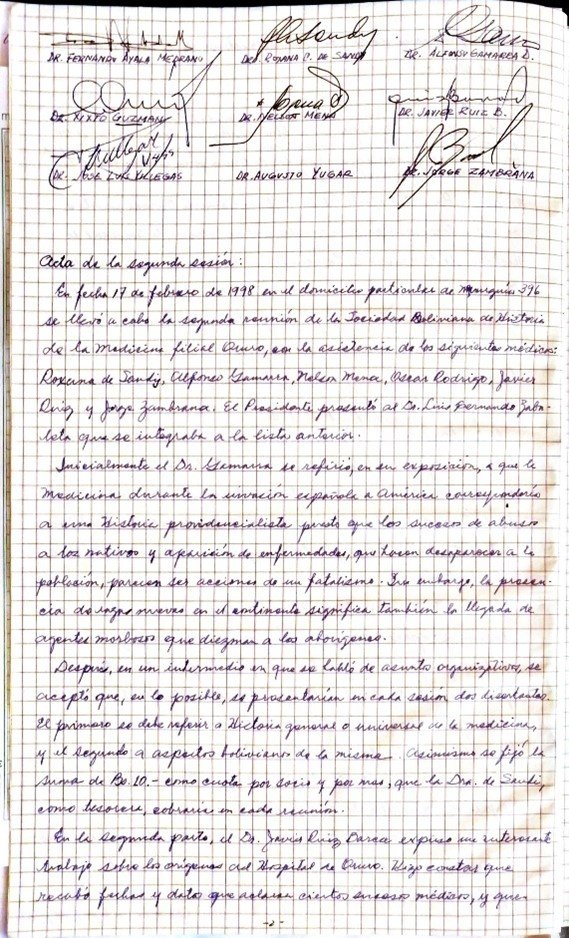 DR. FERNANDO AYALA MEDRANO DRA. ROXANA C. DE SANDY DR. ALFONSO GAMARRA D.
DR. SIXTO GUZMAN DR. NELSON MENA DR. JAVIER RUIZ B.
DR. JOSE LUIS VILLEGAS DR. AUGUSTO YUGAR DR. JORGE ZAMBRANA
Acta de la segunda sesión:
En fecha 17 de febrero de 1998 en el domicilio particular de 396
se llevó a cabo la segunda reunión de la Sociedad Boliviana de Historia
de la Medicina filial Oruro, con la asistencia de los siguientes médicos:
Roxana de Sandy, Alfonso Gamarra, Nelson Mena, Oscar Rodrigo, Javier
Ruiz y Jorge Zambrana. El Presidente presentó al Dr. Luis Fernando Zaba-
leta que se integraba a la lista anterior.
Inicialmente el Dr. Gamarra se refirió, en su exposición, a que la
Medicina durante la invasión española a América correspondería
a una Historia providencialista puesto que los sucesos de abusos
a los nativos y aparición de enfermedades, que hacen desaparecer a la
población, parecen ser acciones de un fatalismo. Sin embargo, la presen-
cia de razas nuevas en el continente significa también la llegada de
agentes morbosos que diezman a los aborígenes.
Después, en un intermedio en que se habló de asuntos organizativos, se
aceptó que, en lo posible, se presentarían en cada sesión dos disertantes.
El primero se debe referir a Historia general o universal de la medicina,
y el segundo a aspectos bolivianos de la misma. Asimismo se fijó la
suma de Bs. 10.- como cuota por socio y por mes, que la Dra. de Sandi,
como tesorera, cobraría en cada reunión.
En la segunda parte, el Dr. Javier Ruiz Barea expuso un interesante
trabajo sobre los orígenes del Hospital de Oruro. Hizo constar que
recabó fechas y datos que aclaran ciertos sucesos médicos, y que
-2-